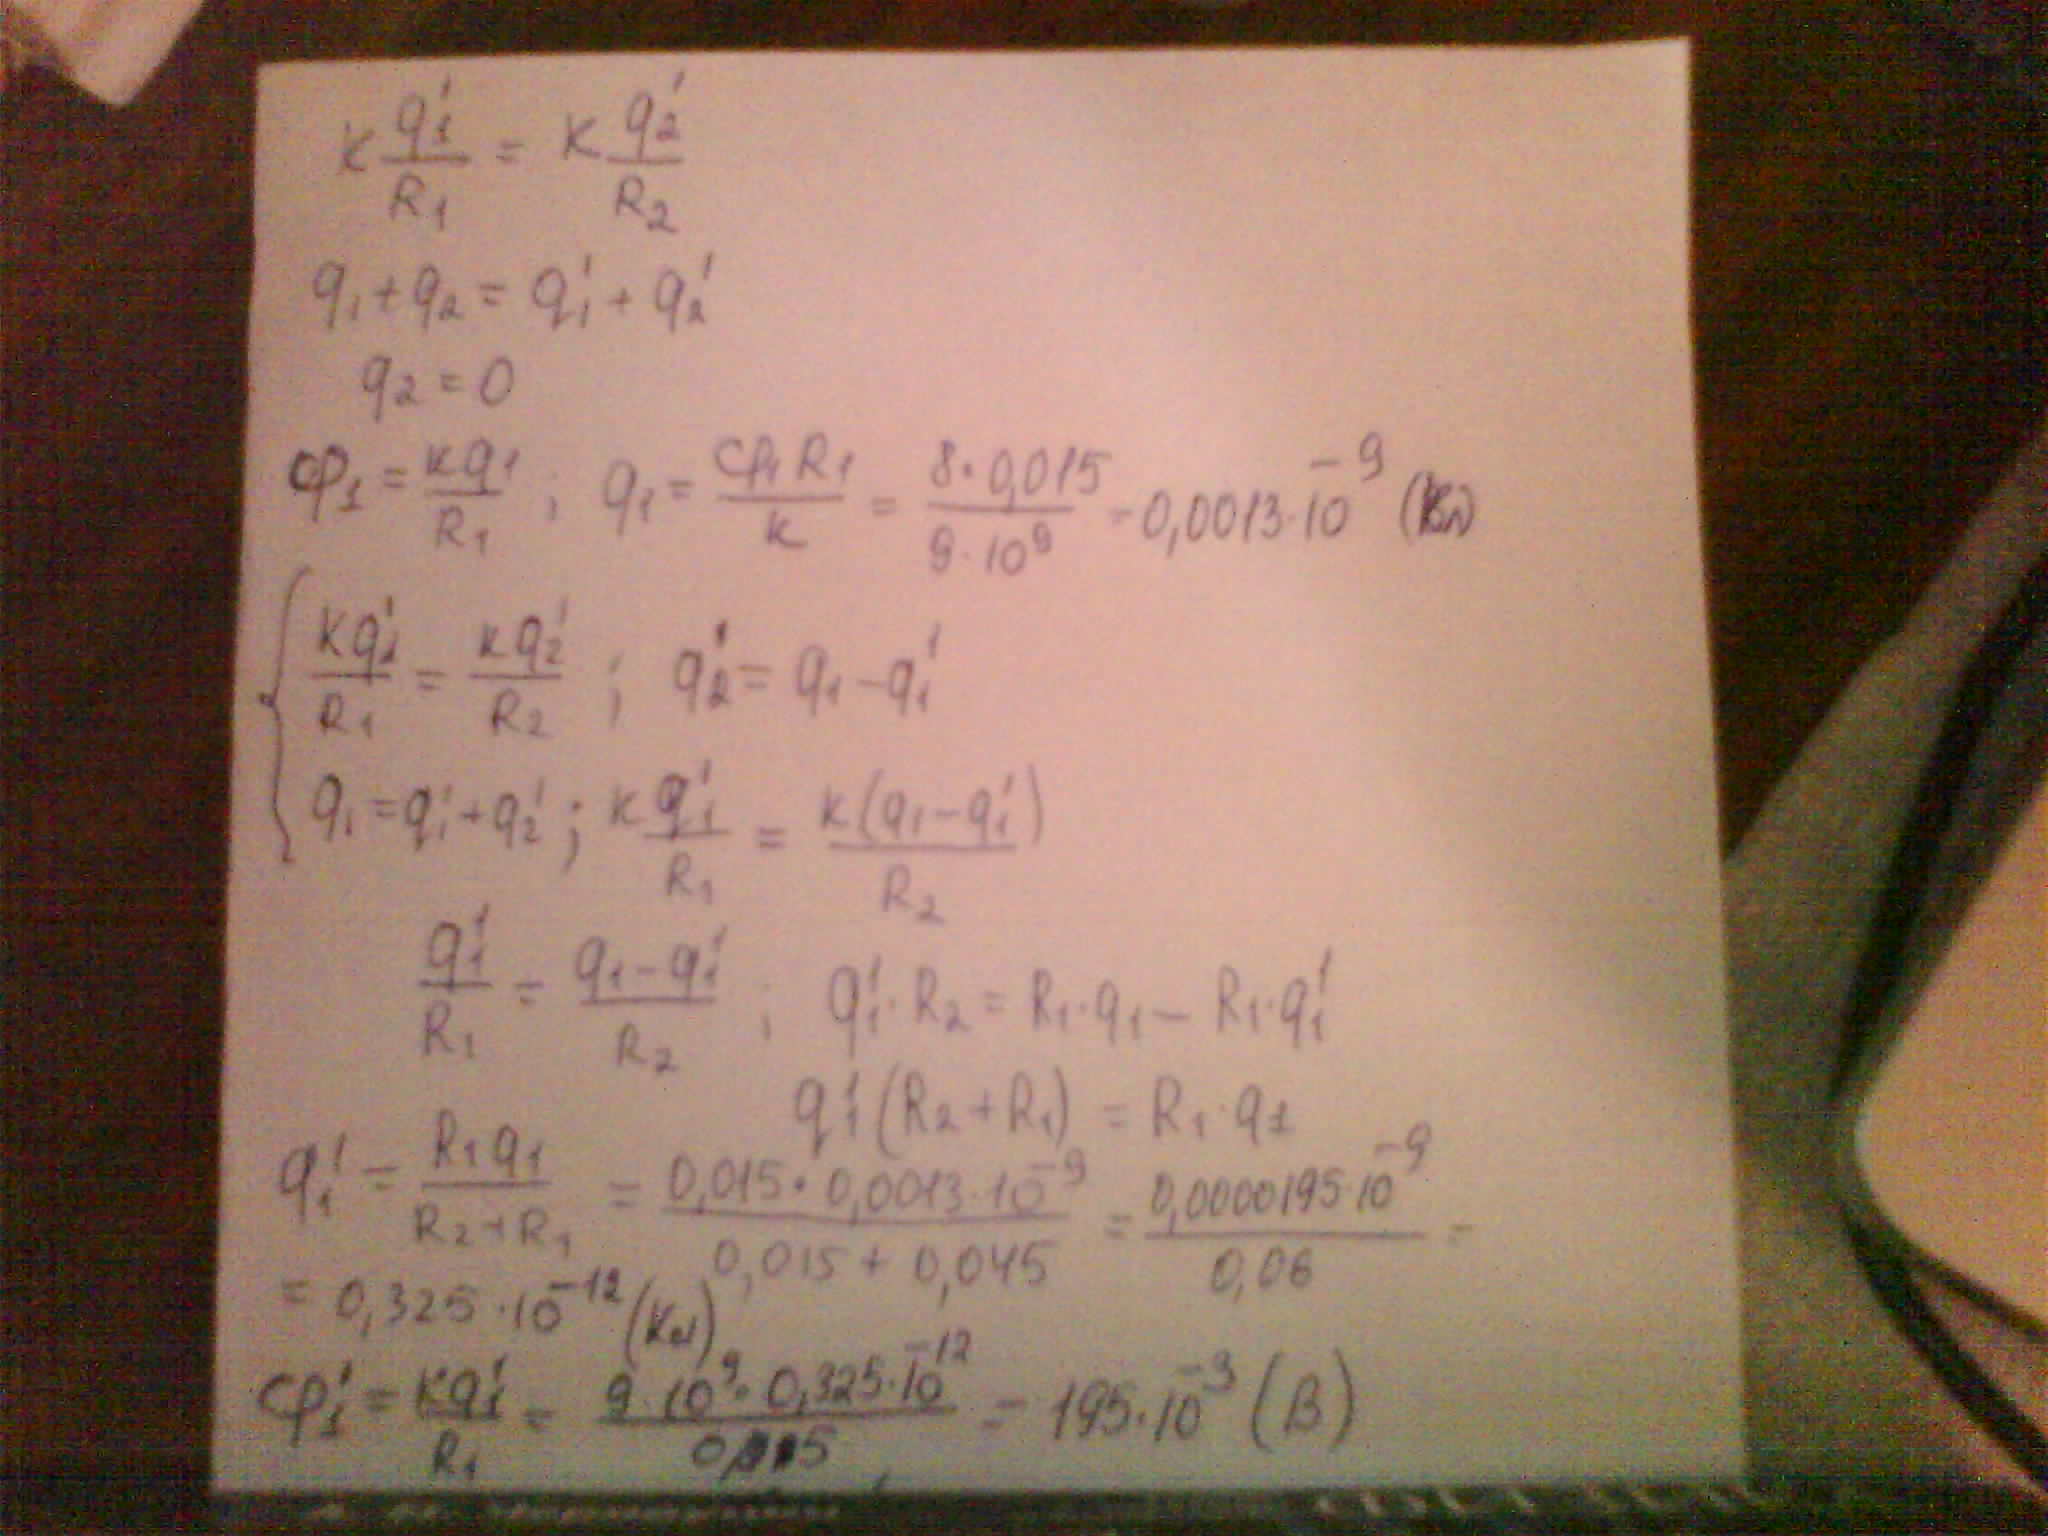 k q₁'/R₁ = k q₂'/R₂
q₁ + q₂ = q₁' + q₂'
q₂ = 0
φ₁ = kq₁/R₁ ; q₁ = φ₁R₁/k = 8·0,015/9·10⁹ = 0,0013·10⁻⁹ (Кл)
kq₁'/R₁ = kq₂'/R₂ ; q₂' = q₁ - q₁'
q₁ = q₁' + q₂' ; k q₁'/R₁ = k(q₁ - q₁')/R₂
q₁'/R₁ = q₁ - q₁'/R₂ ; q₁'·R₂ = R₁·q₁ - R₁·q₁'
q₁'(R₂ + R₁) = R₁·q₁
q₁' = R₁q₁/R₂+R₁ = 0,015·0,0013·10⁻⁹/0,015+0,045 = 0,0000195·10⁻⁹/0,06 =
= 0,325·10⁻¹² (Кл)
φ₁' = kq₁'/R₁ = 9·10⁹·0,325·10⁻¹²/0,015 = 195·10⁻³ (В)